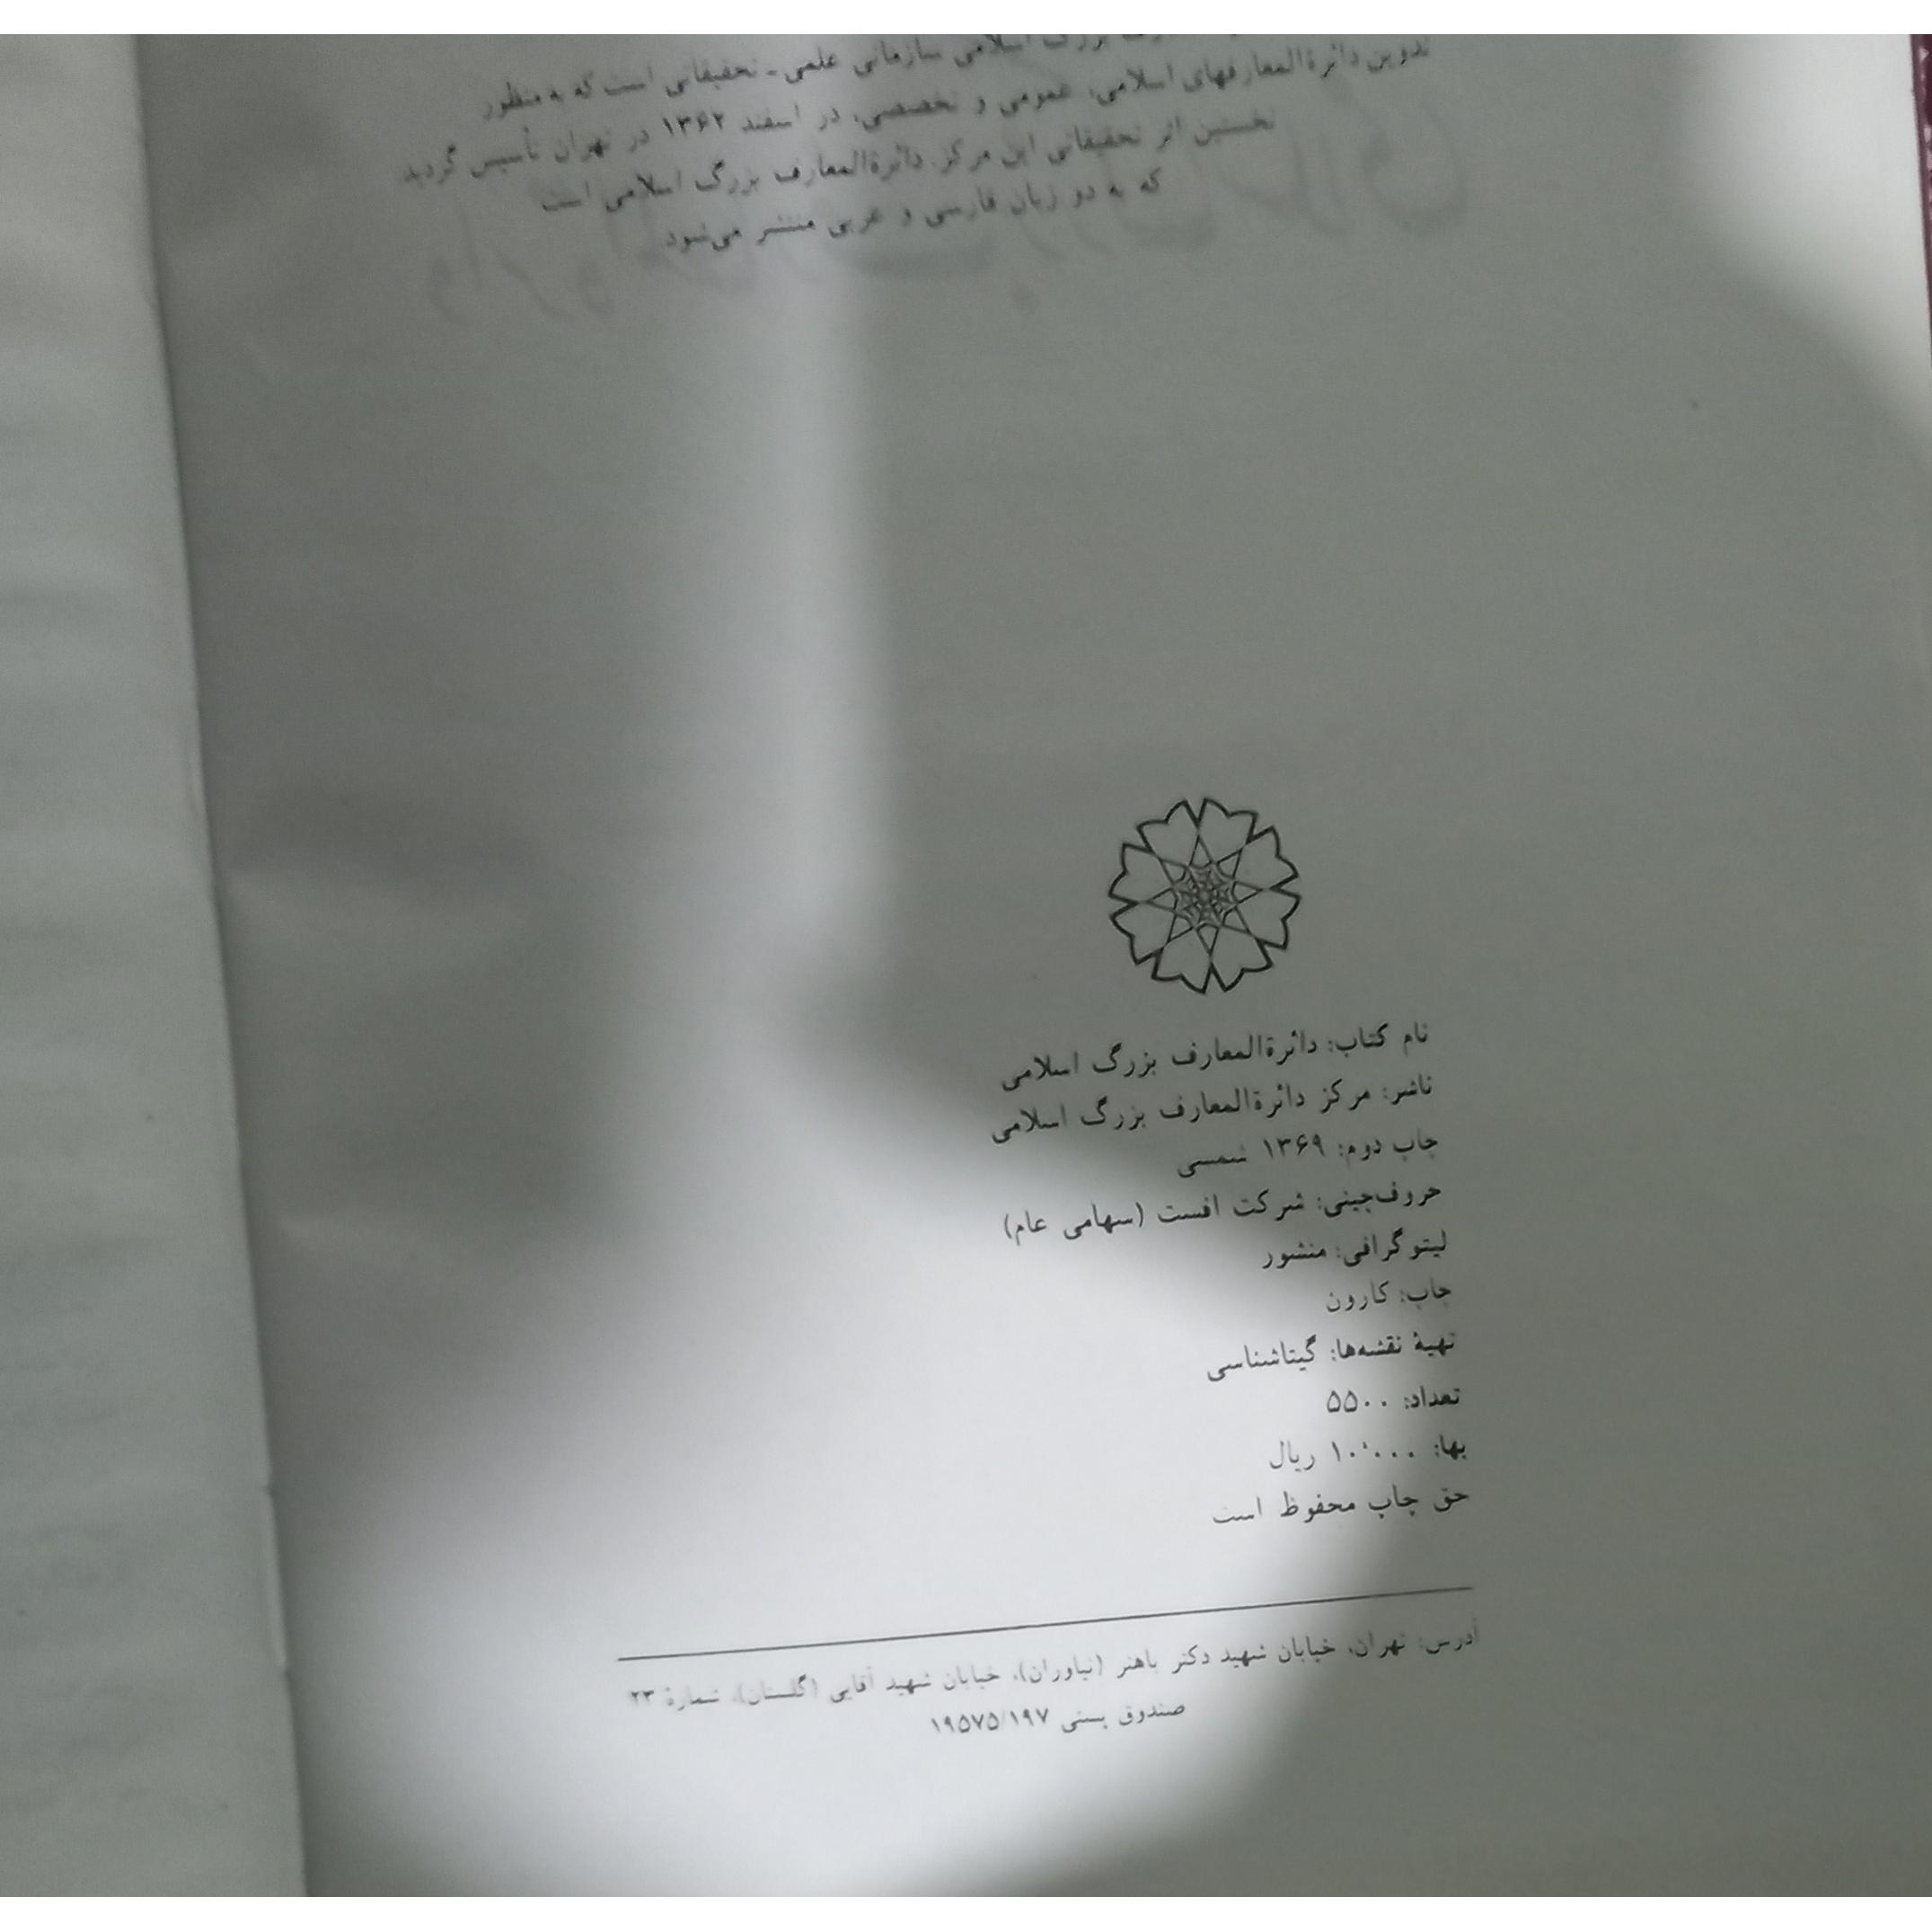 بزرگ اسلامی سازمانی علمی ـ تحقیقاتی است که به منظور
تدوین دائرةالمعارفهای اسلامی، عمومی و تخصصی، در اسفند ۱۳۶۲ در تهران تأسیس گردید
نخستین اثر تحقیقاتی این مرکز دائرةالمعارف بزرگ اسلامی است
که به دو زبان فارسی و عربی منتشر می‌شود
نام کتاب: دائرةالمعارف بزرگ اسلامی
ناشر: مرکز دائرةالمعارف بزرگ اسلامی
چاپ دوم: ۱۳۶۹ شمسی
حروف‌چینی: شرکت افست (سهامی عام)
لیتوگرافی: منشور
چاپ: کارون
تهیهٔ نقشه‌ها: گیتاشناسی
تعداد: ۵۵۰۰
بها: ۱۰٬۰۰۰ ریال
حق چاپ محفوظ است
آدرس: تهران، خیابان شهید دکتر باهنر (نیاوران)، خیابان شهید آقایی (گلستان)، شمارهٔ ۲۳
صندوق پستی ۱۹۵۷۵/۱۹۷